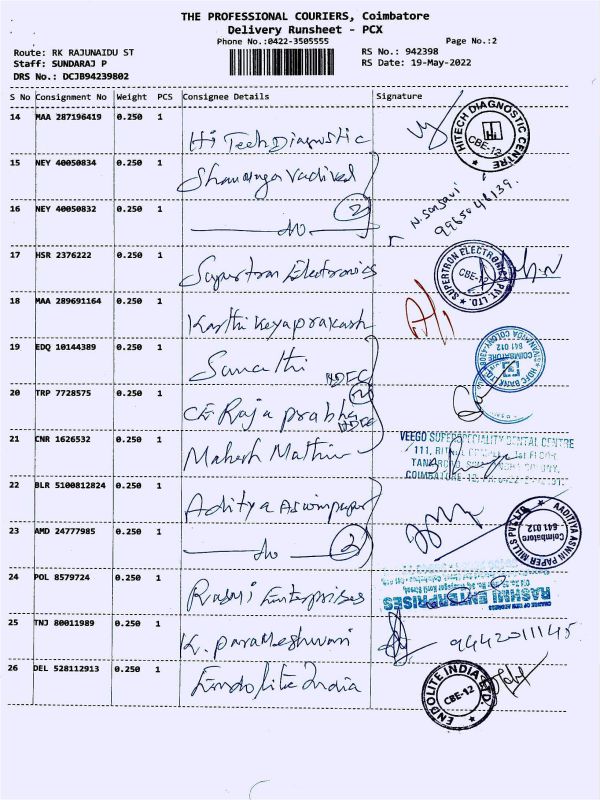 THE PROFESSIONAL COURIERS, Coimbatore
Delivery Runsheet - PCX
Phone No.:0422-3505555 Page No.:2
Route: RK RAJUNAIDU ST RS No.: 942398
Staff: SUNDARAJ P RS Date: 19-May-2022
DRS No.: DCJB94239802
S No Consignment No Weight PCS Consignee Details Signature
14 MAA 287196419 0.250 1 Hi Tech Diagnostic
HITECH DIAGNOSTIC CENTRE
CBE-12
15 NEY 40050834 0.250 1
16 NEY 40050832 0.250 1 do 2
17 HSR 2376222 0.250 1 Supertron Electronics
SUPERTRON ELECTRONICS PVT. LTD.
CBE-12
18 MAA 289691164 0.250 1 Karthikeyaprakash
19 EDQ 10144389 0.250 1 HDFC
HDFC BANK LTD.
COIMBATORE
641 012
20 TRP 7728575 0.250 1 Raja prabha
21 CNR 1626532 0.250 1 Mahesh
VEEGO SUPERSPECIALITY DENTAL CENTRE
22 BLR 5100812824 0.250 1 Aditya Aswinpaper
23 AMD 24777985 0.250 1 do
AADITYA ASWIN PAPER MILLS PVT LTD
Coimbatore
641 012
24 POL 8579724 0.250 1 Rasmi Enterprises
CHANGE OF NEW ADDRESS
RASHMI ENTERPRISES
25 TNJ 80011989 0.250 1 K. parameshwari
26 DEL 528112913 0.250 1 Endolite India
ENDOLITE INDIA LTD.
CBE-12